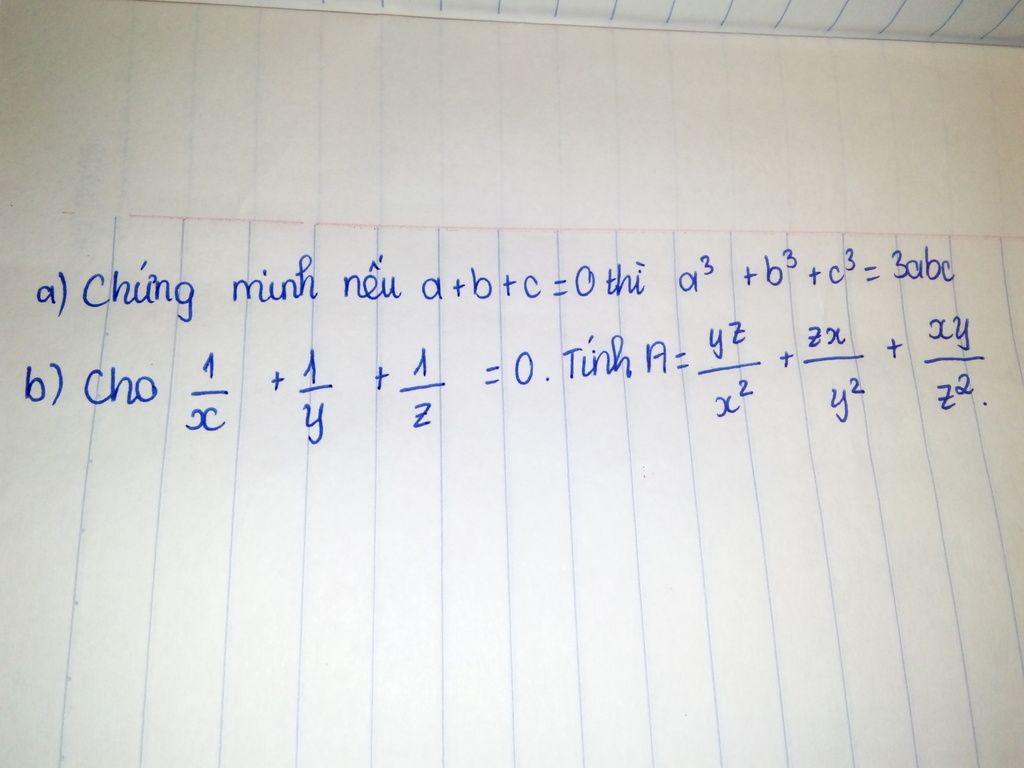 a) Chứng minh nếu a + b + c = 0 thì a³ + b³ + c³ = 3abc
b) Cho 1/x + 1/y + 1/z = 0. Tính A = yz/x² + zx/y² + xy/z².